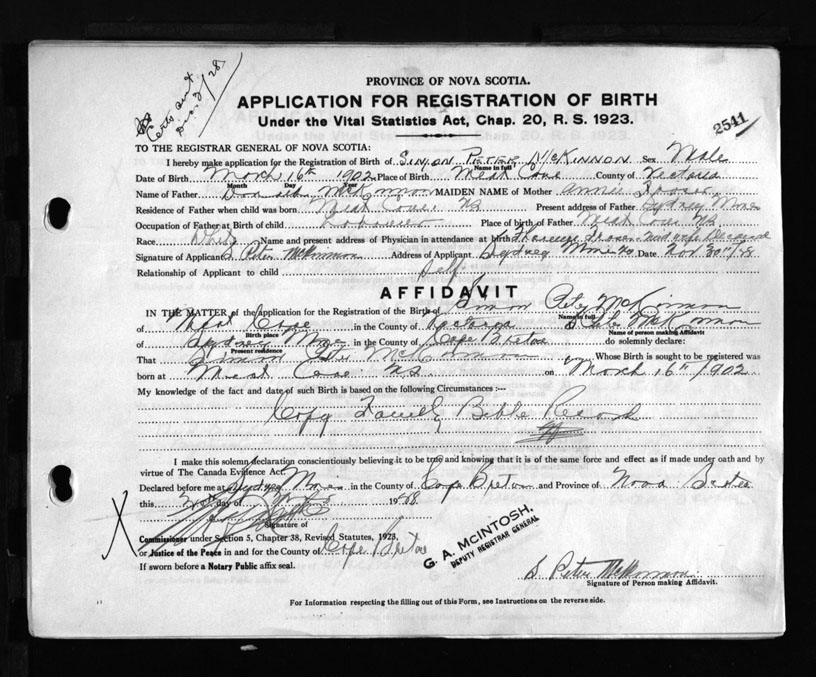 Certs sent
PROVINCE OF NOVA SCOTIA.
APPLICATION FOR REGISTRATION OF BIRTH
Under the Vital Statistics Act, Chap. 20, R. S. 1923.
2541
TO THE REGISTRAR GENERAL OF NOVA SCOTIA:
I hereby make application for the Registration of Birth of Simon Peter McKinnon Sex Male
Name in full
Date of Birth March 16th 1902 Place of Birth Meat Cove County of Victoria
Month Day Year
Name of Father McKinnon MAIDEN NAME of Mother Annie
Residence of Father when child was born Meat Cove NS Present address of Father Sydney Mines
Occupation of Father at Birth of child Place of birth of Father Meat Cove NS
Race White Name and present address of Physician in attendance at birth
Signature of Applicant S Peter McKinnon Address of Applicant Sydney Mines Date Nov 30th/48
Relationship of Applicant to child Self
AFFIDAVIT
IN THE MATTER of the Application for the Registration of the Birth of Simon Peter McKinnon
Name in full
of Meat Cove in the County of Victoria S Peter McKinnon
Birth place Name of person making Affidavit
of Sydney Mines in the County of Cape Breton do solemnly declare:
Present residence
That Simon Peter McKinnon Whose Birth is sought to be registered was
born at Meat Cove NS on March 16th 1902
My knowledge of the fact and date of such Birth is based on the following Circumstances :—
Copy Family Bible Record
I make this solemn declaration conscientiously believing it to be true and knowing that it is of the same force and effect as if made under oath and by
virtue of The Canada Evidence Act.
Declared before me at Sydney Mines in the County of Cape Breton and Province of Nova Scotia
this day of 1948.
Signature of
X
Commissioner under Section 5, Chapter 38, Revised Statutes, 1923,
or Justice of the Peace in and for the County of Cape Breton
If sworn before a Notary Public affix seal.
G. A. McINTOSH,
DEPUTY REGISTRAR GENERAL
S Peter McKinnon
Signature of Person making Affidavit.
For Information respecting the filling out of this Form, see Instructions on the reverse side.